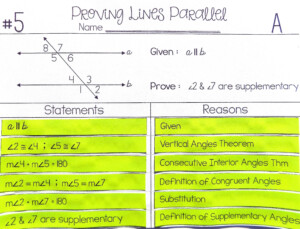 #5
Proving Lines Parallel
Name
A
8 7
5 6
a
4 3
1 2
b
Given : a ∥ b
Prove : ∠2 & ∠7 are supplementary
Statements Reasons
a ∥ b Given
∠2 ≅ ∠4 ; ∠5 ≅ ∠7 Vertical Angles Theorem
m∠4 + m∠5 = 180 Consecutive Interior Angles Thm
m∠2 = m∠4 ; m∠5 = m∠7 Definition of Congruent Angles
m∠2 + m∠7 = 180 Substitution
∠2 & ∠7 are supplementary Definition of Supplementary Angles